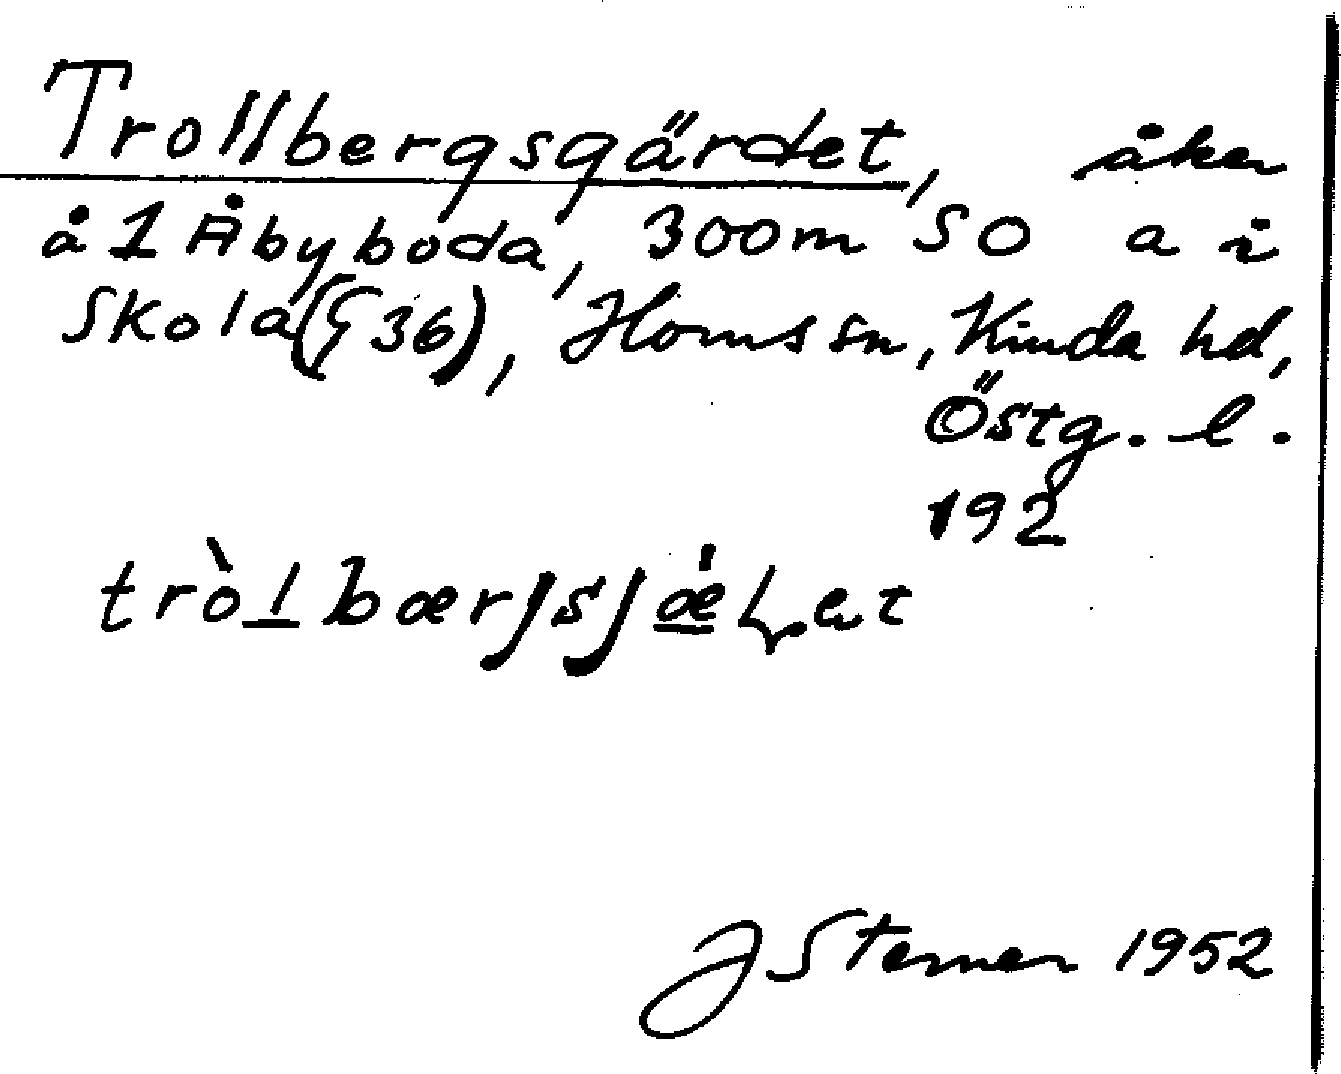 Trollbergsgärdet, åker
å 1 Åbyboda, 300m SO a i
Skola (§ 36), Horns sn, Kinda hd,
Östg. l.
192
tròlbærjsjǽɽat
J Sterner 1952